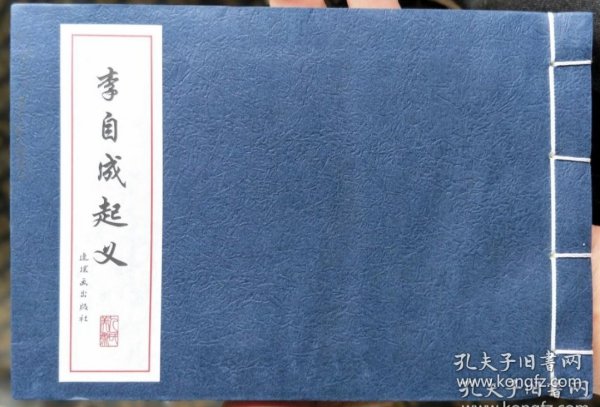 李自成起义
连环画出版社
孔夫子旧书网
www.kongfz.com
孔夫子旧书网
www.kongfz.com